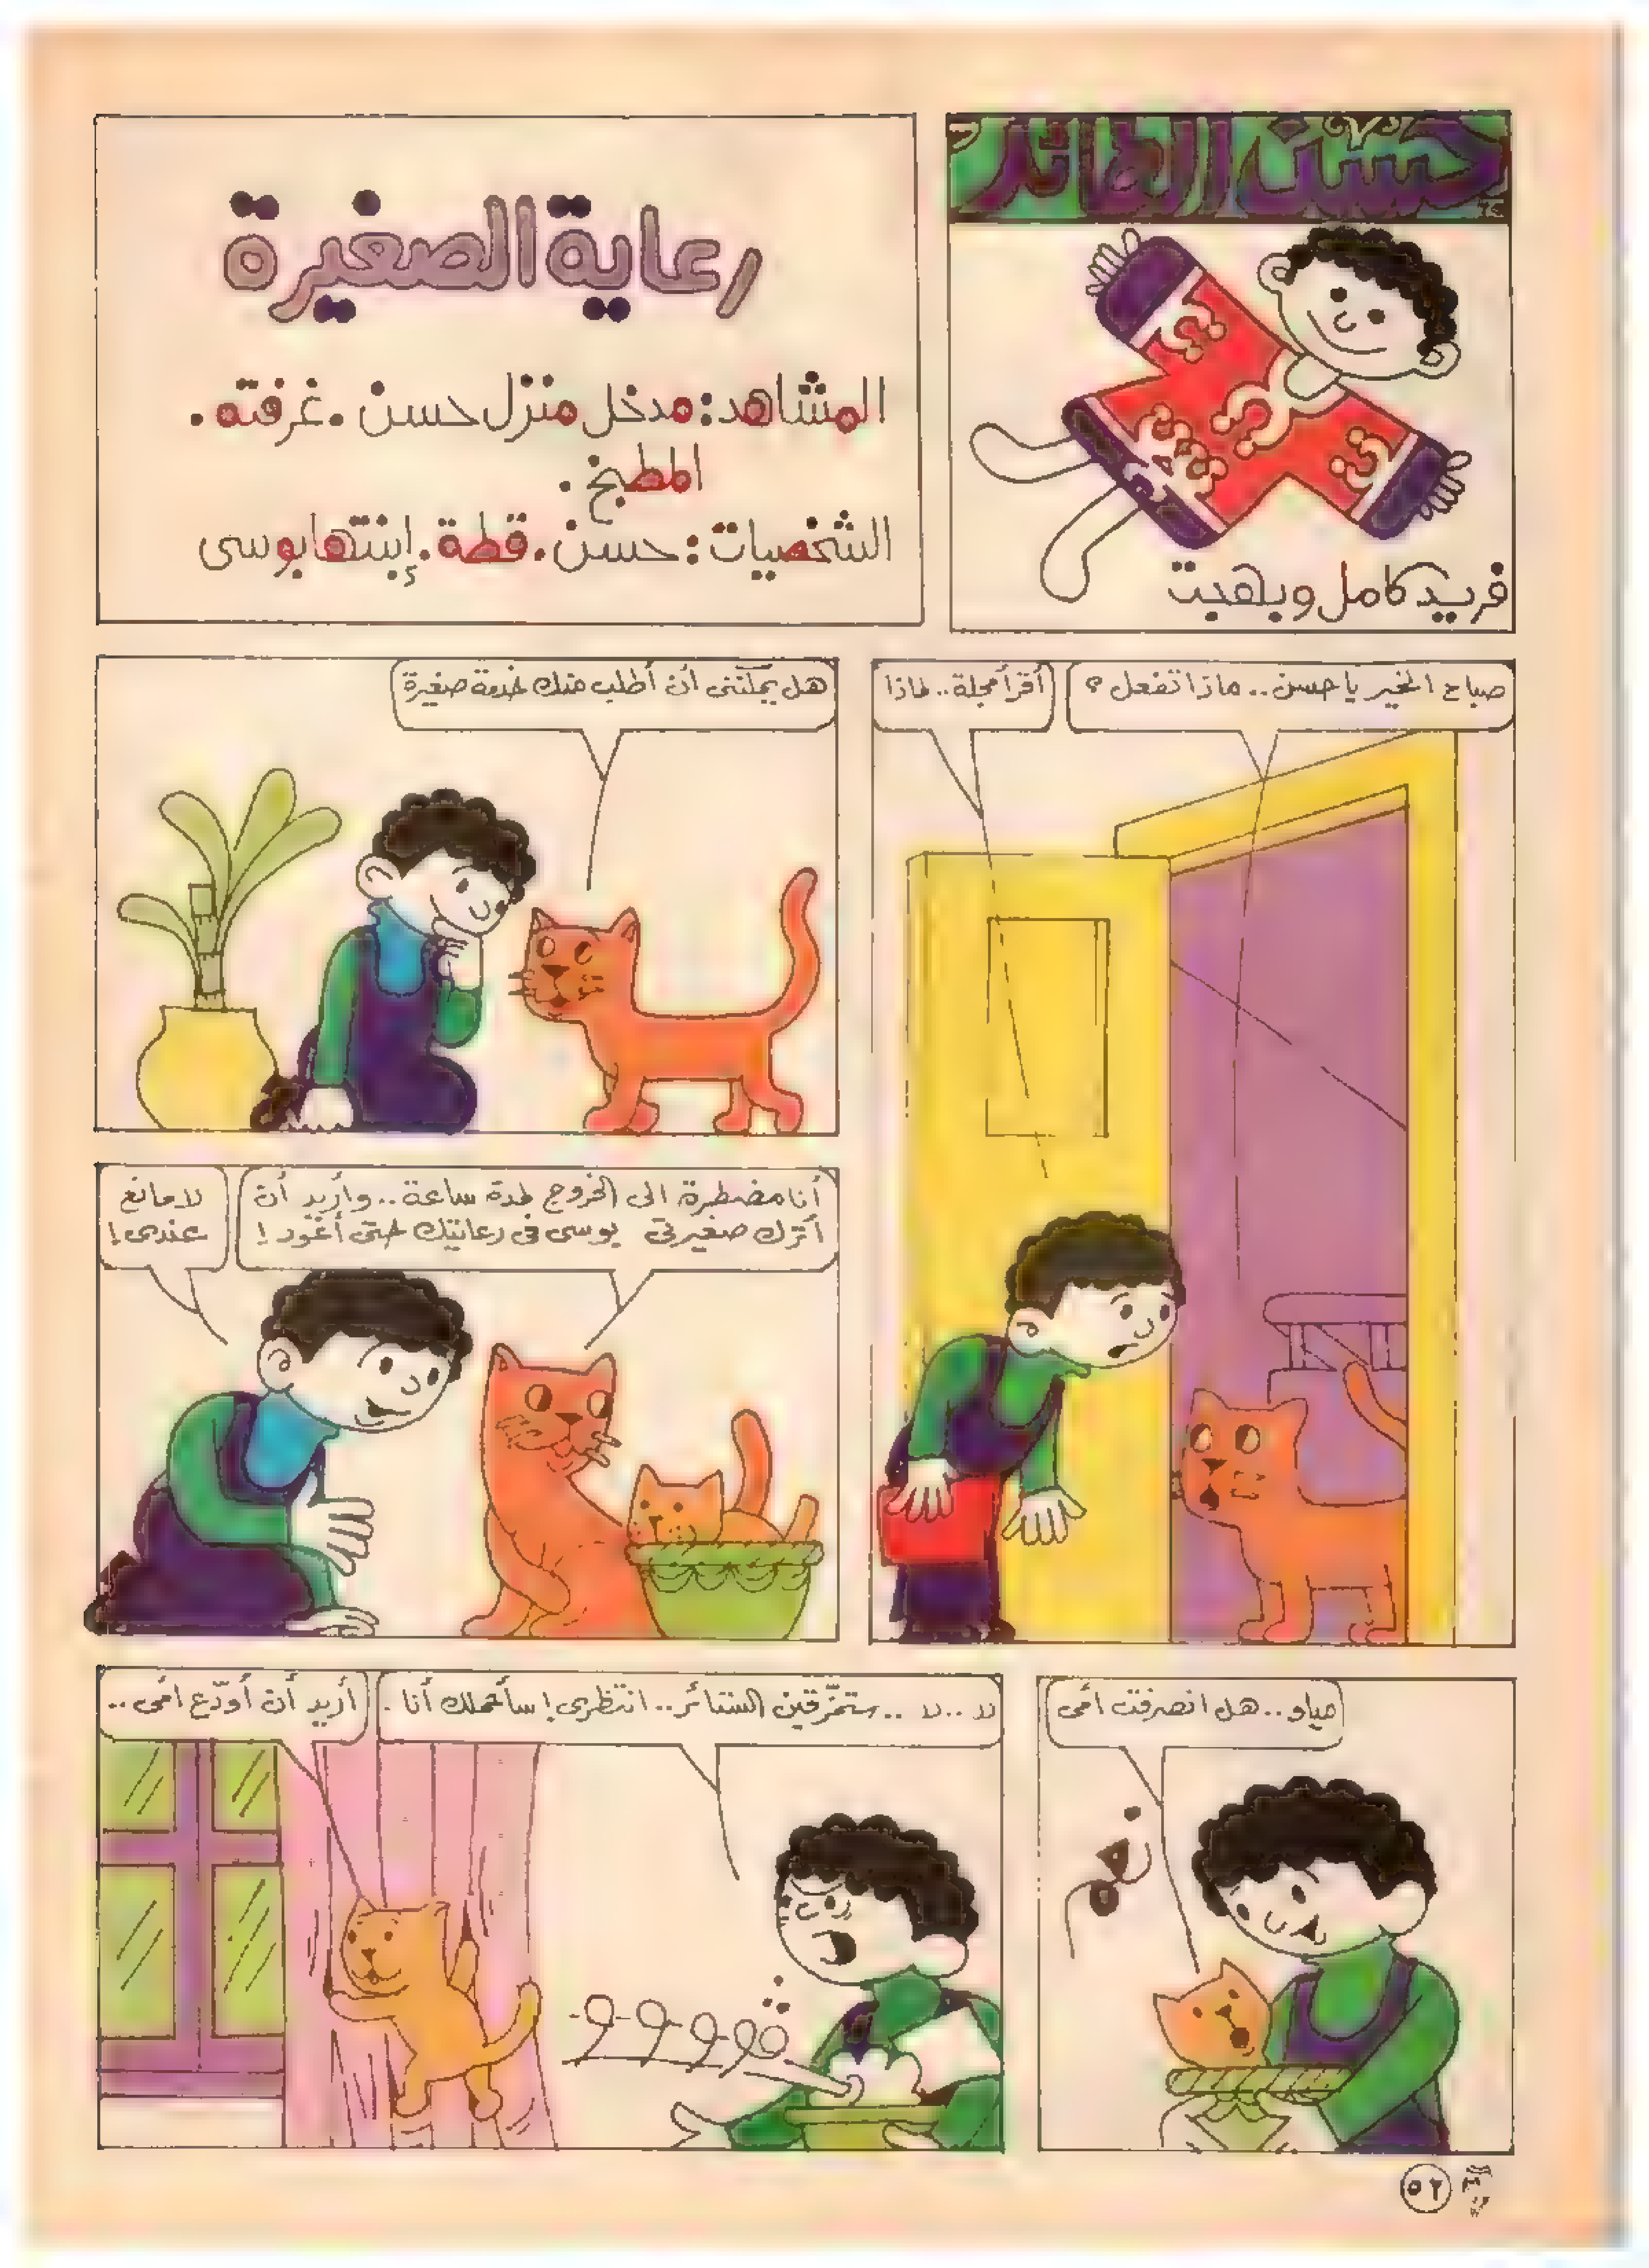 حسن الطائر
فريد كامل وبهجت
رعاية الصغيرة
المشاهد: مدخل منزل حسن . غرفته .
المطبخ .
الشخصيات: حسن . قطة . إبنتها بوسى
صباح الخير يا حسن .. ماذا تفعل ؟
أقرأ مجلة .. لماذا
هل يمكننى أن أطلب منك خدمة صغيرة
أنا مضطرة الى الخروج لمدة ساعة .. وأريد أن
أترك صغيرتى بوسى فى رعايتك حتى أعود !
لا مانع
عندى !
مياو .. هل انصرفت أمى
نعم
لا .. لا .. ستمزقين الستائر .. انتظرى ! سأحملك أنا .
أريد أن أودّع أمى ..
٥٢